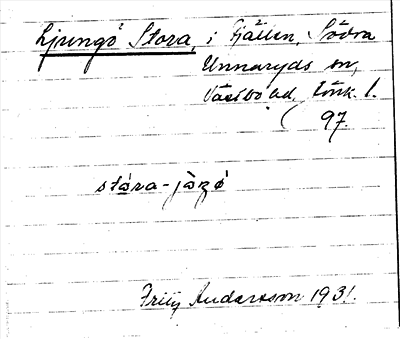 Ljungö Stora, i Fjällen, Södra
Unnaryds sn,
Västbo hd, Jönk. l.
97.
stóra-jò̀ŋö́
Fritz Andersson 1931.